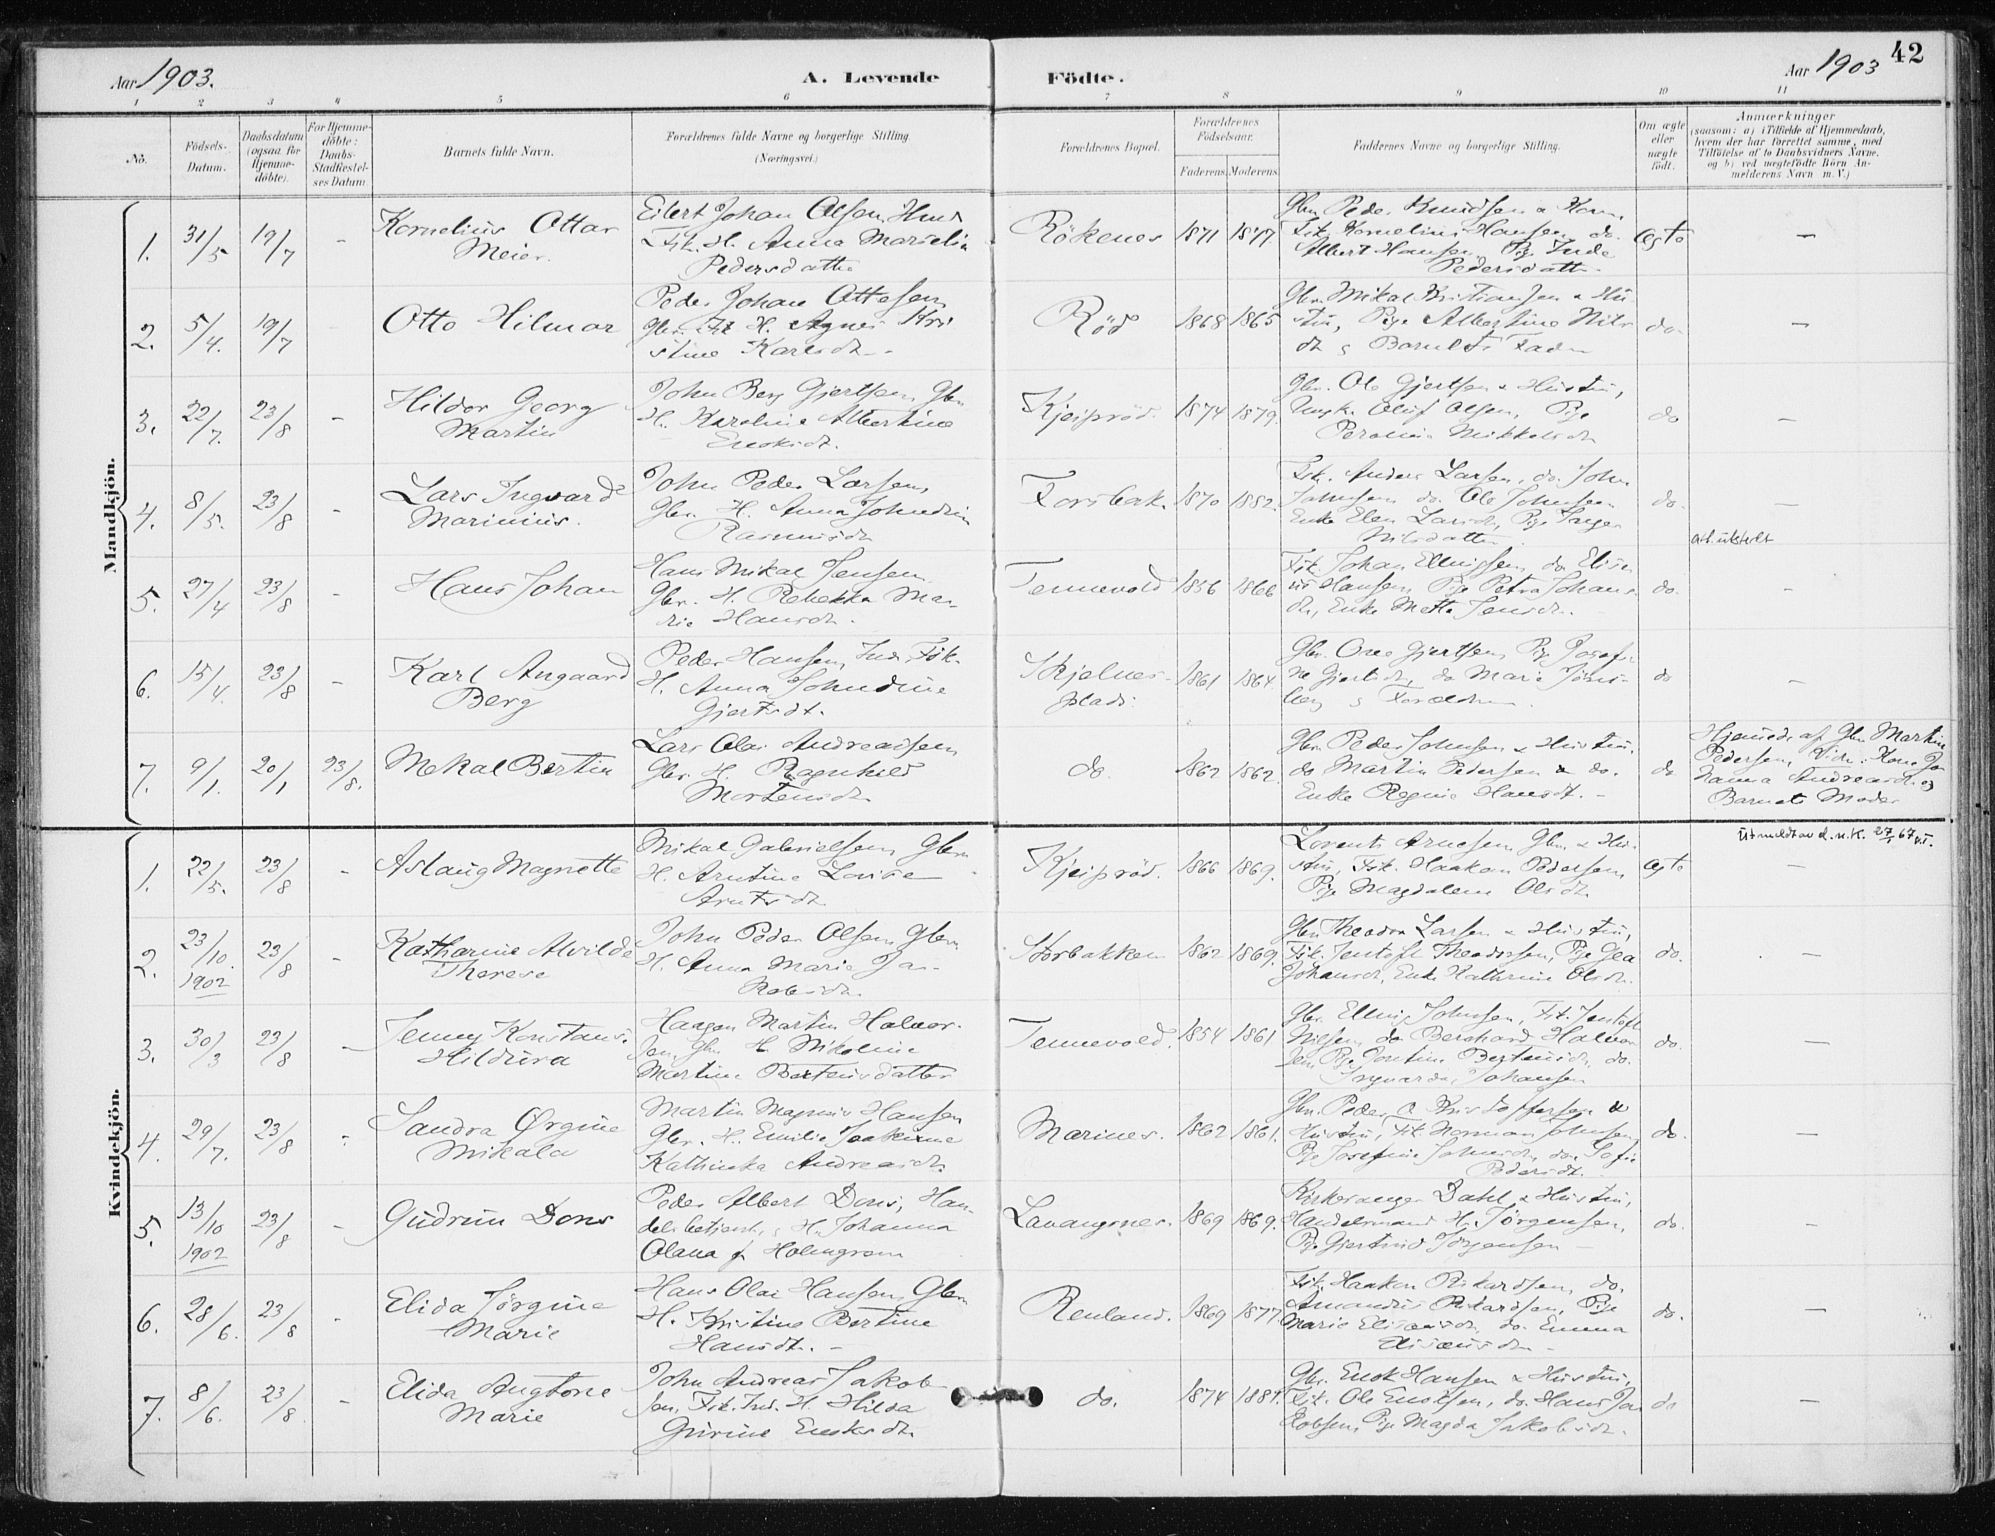 Aar 1903.
A. Levende Födte.
Aar 1903
42
1 2 3 4 5 6 7 8 9 10 11
No.
Födsels-Datum.
Daabsdatum (ogsaa for Hjemme-döbte).
For Hjemme-döbte: Daabs-Stadfæstel-ses Datum
Barnets fulde Navn.
Forældrenes fulde Navne og borgerlige Stilling. (Næringsvei.)
Forældrenes Bopæl.
Forældrenes Födselsaar.
Faderens. Moderens.
Faddernes Navne og borgerlige Stilling.
Om ægte eller uægte födt.
Anmærkninger
(saasom: a) i Tilfælde af Hjemmedaab,
hvem der har forrettet samme, med
Tilföielse af to Daabsvidners Navne.
og b) ved uægtefödte Börn An-
melderens Navn m. V.)
Mandkjön.
1. 31/5 19/7 -
Kornelius Ottar
Meier.
Eilert Johan Olsen,
Fsk. H. Anna
Pedersdatter
Rökenes 1871 1877
Gbr. Peder Knudsen &
Fsk. Kornelius Hansen, do.
Albert Hansen, Pige
Pedersdatt.
ægte -
2. 5/4. 19/7
Otto Hilmar
Peder Johan Ottesen,
Gbr. H. Agnes Kri
stine Karlsdt.
Röd 1868 1865
Gbr. Mikal Kristiansen & Hu
stru, Pige Albertine Nils
dt & Barnets Fader
do. -
3. 22/7. 23/8 -
Hildor Georg
Martin
John Berg Gjertsen, Gbr.
H. Karoline Albertine
Enoksdt.
Kjeiprød. 1874 1879.
Gbr. Ole Gjertsen & Hustru,
Ungk. Oluf Olsen, Pige
Mikkelsdt.
do -
4. 8/5. 23/8 -
Lars Ingvard
Marinius.
John Peder Larsen,
Gbr. H. Anna
Rasmusdt.
Forsbak. 1870 1882.
Fsk. Anders Larsen, do. John
Johnsen, do. Ole Johnsen
Enke Elen Larsdt, Pige
Nilsdatter.
do. -
att. utstedt
5. 27/4 23/8 -
Hans Johan
Hans Mikal Jensen
Gbr. H. Rebekka Ma-
rie Hansdt.
Tennevold 1856 1866
Fsk. Johan Ellingsen, do Elise
us Hansen, Pige Petra Johans
dt., Enke Mette Jensdt.
do. -
6. 15/4. 23/8 -
Karl Angaard
Berg
Peder Hansen, Inds. Fsk.
H. Anna Johndine
Gjertsdt.
Skjelnes-
plads. 1861 1864.
Gbr. Gjertsen, Pige Josefi
ne Gjertsdt, do Marie Jöns-
berg & Forældrene.
do -
7. 9/1. 20/1 23/8.
Mekal Bertin
Lars Olai Andreassen
Gbr. H. Ragnhild
Mortensdt.
do. 1862 1862.
Gbr. Peder Johnsen & Hustru,
do Martin Pedersen & do.
Enke Regine Hansdt.
do
Hjemmed. af Gbr. Martin
Pedersen, Vidn. Kone Jo
hanna Andreasdt. og
Barnets Moder
Kvindekjön.
1. 22/5. 23/8 -
Aslaug Magnette
Mikal Gabrielsen, Gbr.
H. Arntine Lovise
Arntsdt.
Kjeiprød. 1866 1869.
Lorents Arnesen Gbr. & Hu-
stru, Fsk. Haakon Pedersen,
Pige Magdalene Olsdt.
ægte -
Utmeldt av d.n.k. 27/1 67
2. 23/10. 1902 23/8 -
Katharine Alvilde
Therese
John Peder Olsen, Gbr.
H. Anna Marie Ja-
kobsdt.
Storbakken 1862 1869.
Gbr. Theodor Larsen & Hustru,
Fsk. Jentoft Theodorsen, Pige Gea
Johansdt, Enke Kathrine Olsdt.
do. -
3. 30/3 23/8 -
Jenny Konstanse
Hildura
Haagen Martin Halvor-
sen, Gbr. H. Nikoline
Martine Bertensdatter
Tennevold. 1854 1861
Gbr. Elling Johnsen, Fsk. Jentoft
Nielsen, do Bernhard Halvor
sen, Pige Bertensdt, do.
Ingvarda Johansen
do. -
4. 29/7. 23/8 -
Sandra Ørgine
Mikala
Martin Magnus Hansen
Gbr. H. Emilie
Kathinka Andreasdt.
Marines. 1862 1861.
Gbr. Peder A Kristoffersen &
Hustru, Fsk. Norman Johnsen,
Pige Josefine Johnsdt, do. Sofie
Pedersdt.
do. -
5. 13/10 1902 23/8 -
Gudrun Dons
Peder Albert Dons, Han-
delsbetjent, & H. Johanna
Olava f. Holmgren
Lavangsnes. 1869 1869.
Kirkesanger Dahl & Hustru,
Handelsmand H. Jørgensen,
Pige Gjertrud Jørgensen
do. -
6. 28/6. 23/8 -
Elida Jørgine
Marie
Hans Olai Hansen, Gbr.
H. Kristine Bertine
Hansdt.
Renland. 1869 1877.
Fsk. Haakon Rikardsen, do.
Amandus Rikardsen, Pige
Marie Eliseusdt, do. Emma
Eliseusdt.
do. -
7. 8/6. 23/8 -
Elida Angtore
Marie
John Andreas Jakob
sen, Fsk. Ind. H. Hilda
Gurine Enoksdt.
do. 1874 1881.
Gbr. Enok Hansen & Hustru,
Fsk. Ole Enoksen, do. Hans Ja
kobsen, Pige Magda Jakobsdt.
do -